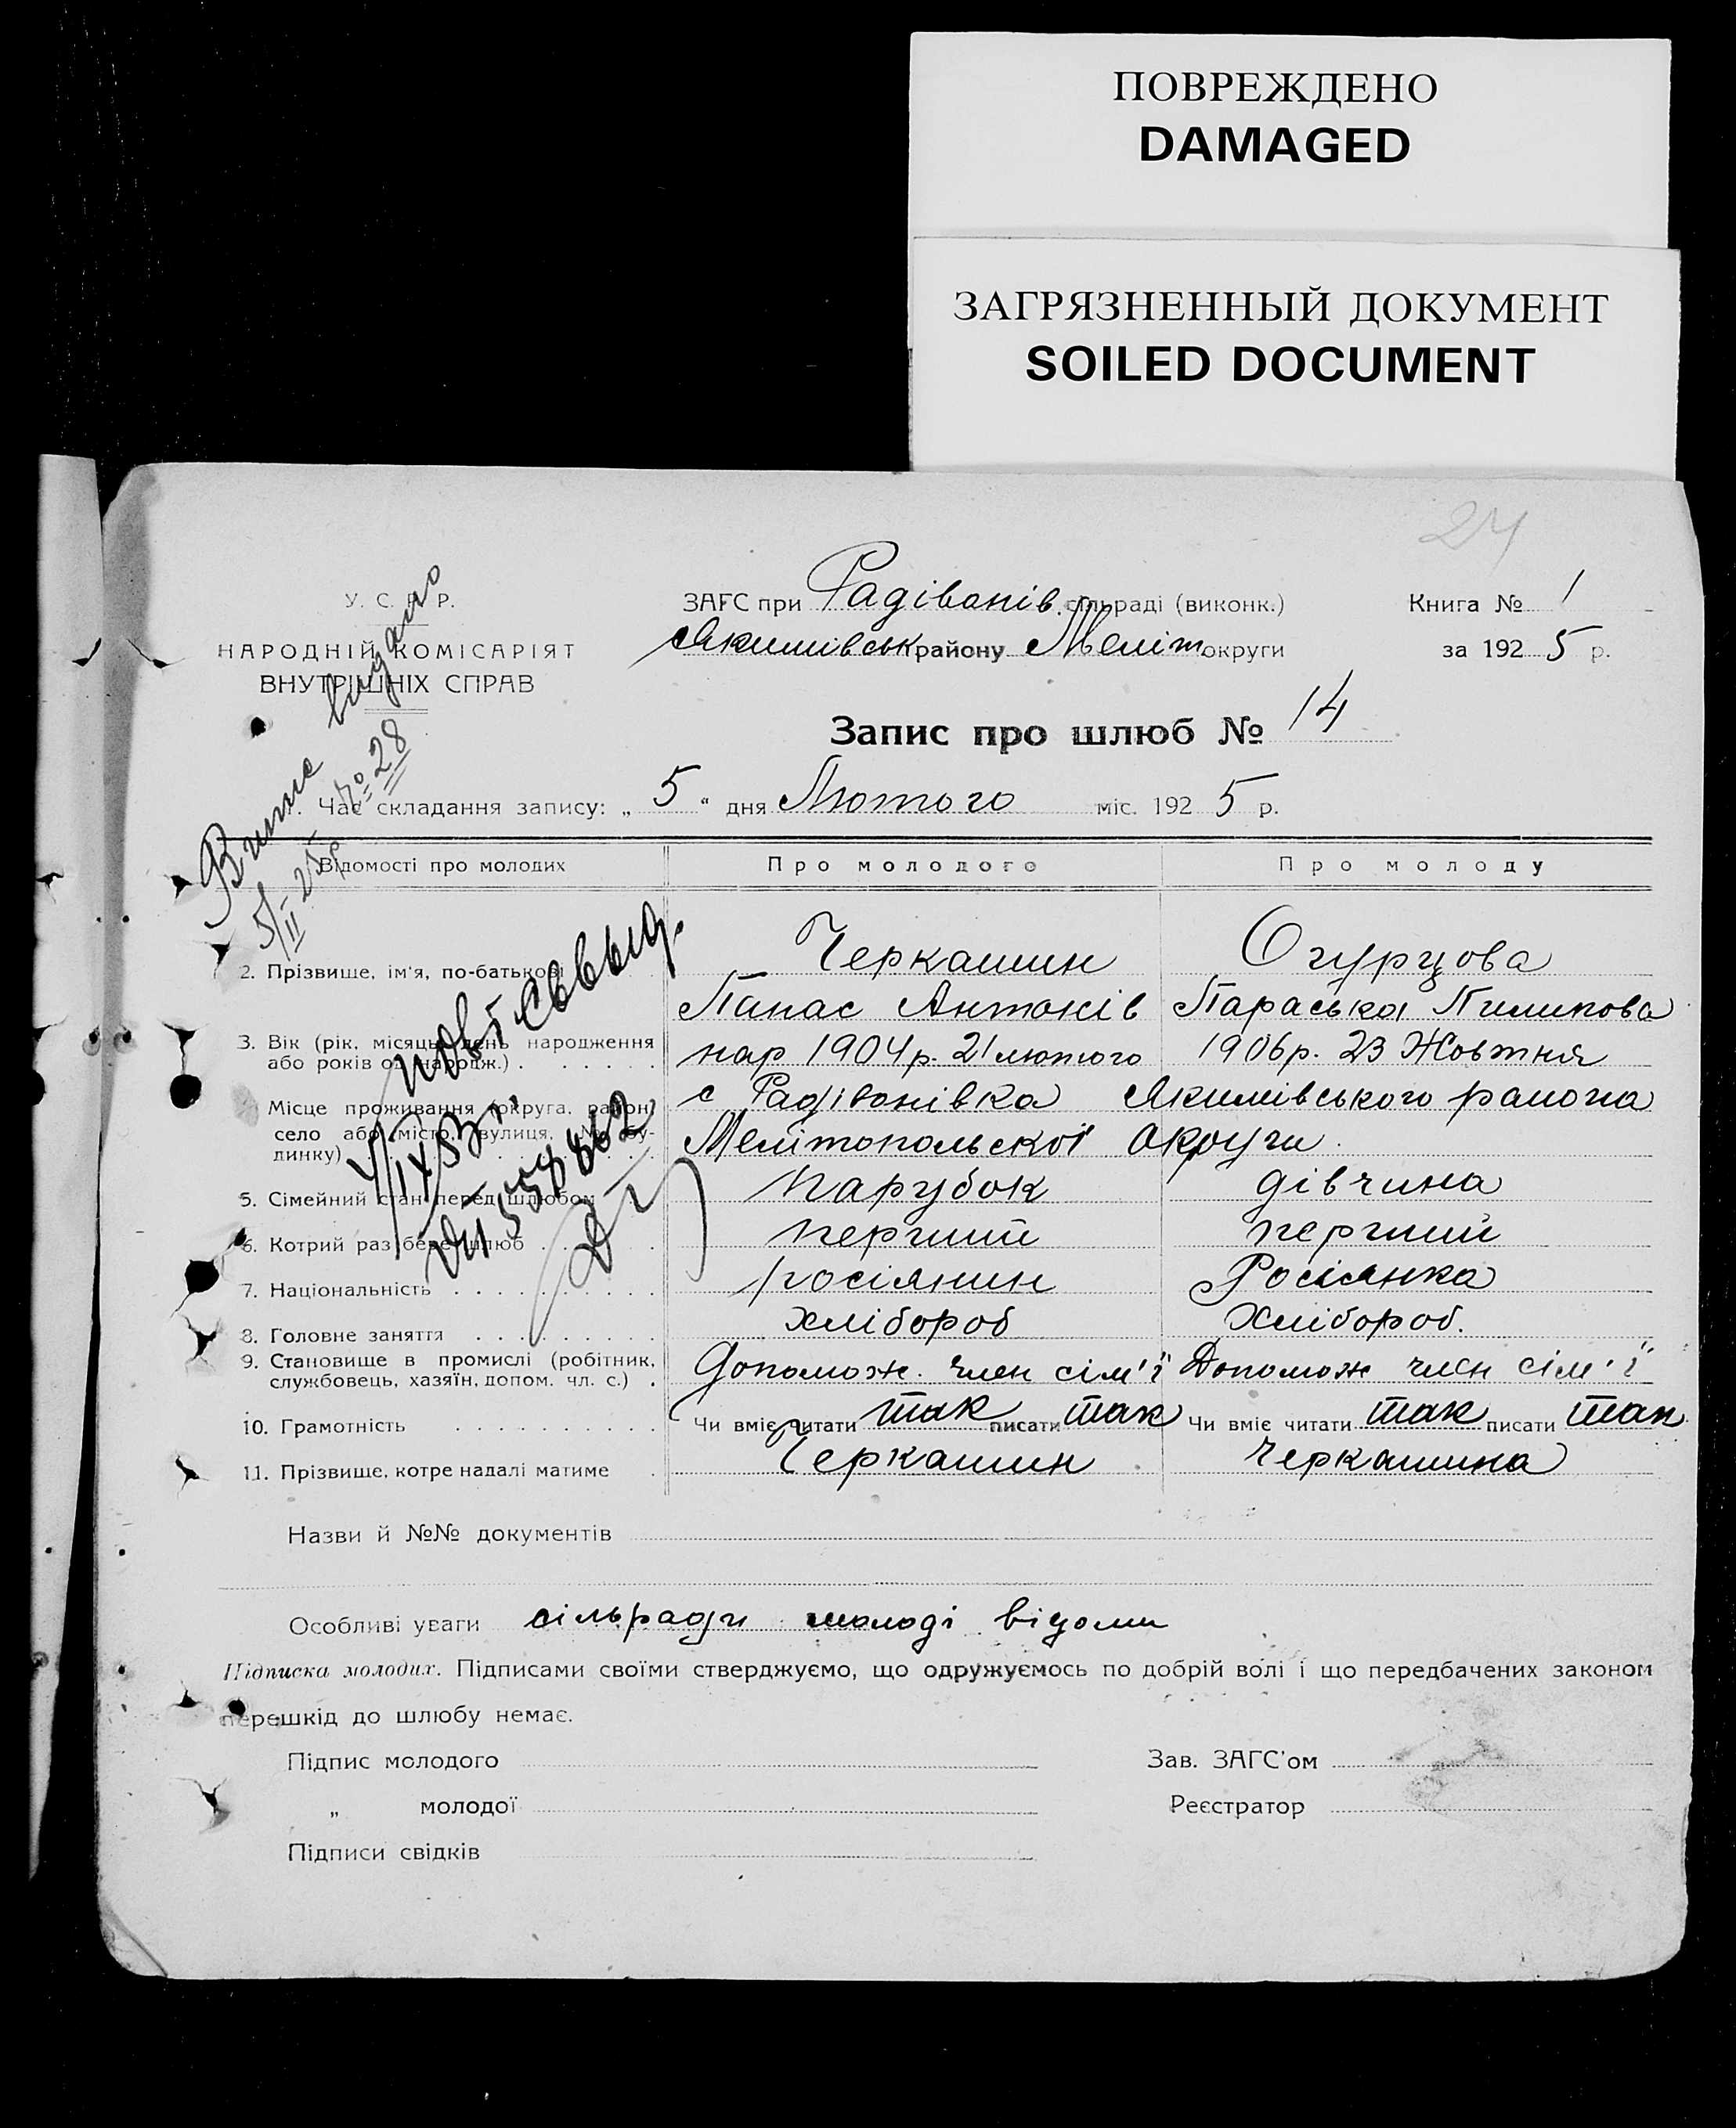 ПОВРЕЖДЕНО
DAMAGED
ЗАГРЯЗНЕННЫЙ ДОКУМЕНТ
SOILED DOCUMENT
24
У. С. Р. Р.
НАРОДНІЙ КОМІСАРІЯТ
ВНУТРІШНІХ СПРАВ
ЗАГС при Радіванів. сільраді (виконк.)
Якимівськ району Меліт округи
Книга № 1
за 1925 р.
Запис про шлюб № 14
Витис видано
№ 28
5/II-25р
1. Час складання запису: „5" дня Лютого міс. 1925 р.
Відомості про молодих Про молодого Про молоду
2. Прізвище, ім'я, по-батькові Черкашин Огурцова
Панас Антонів Параська Пилипова
3. Вік (рік, місяць, день народження або років од народж.) нар 1904р. 21 лютого 1906р. 23 Жовтня
Місце проживання (округа, район, село або місто, вулиця, № будинку) с Радівонівка Якимівського района
Мелітопольскої округи.
5. Сімейний стан перед шлюбом Парубок дівчина
6. Котрий раз бере шлюб перший перший
7. Національність росіянин Росіянка
8. Головне заняття хлібороб Хлібороб.
9. Становище в промислі (робітник, службовець, хазяїн, допом. чл. с.) Допомож. член сім'ї Допомож член сім'ї
10. Грамотність Чи вміє читати так писати так Чи вміє читати так писати так
11. Прізвище, котре надалі матиме Черкашин Черкашина
повт. сввыд.
4/IX 53 г.
558862
Назви й №№ документів
Особливі уваги сільради молоді відоми
Підписка молодих. Підписами своїми стверджуємо, що одружуємось по добрій волі і що передбачених законом
перешкід до шлюбу немає.
Підпис молодого Зав. ЗАГС'ом
„ молодої Реєстратор
Підписи свідків